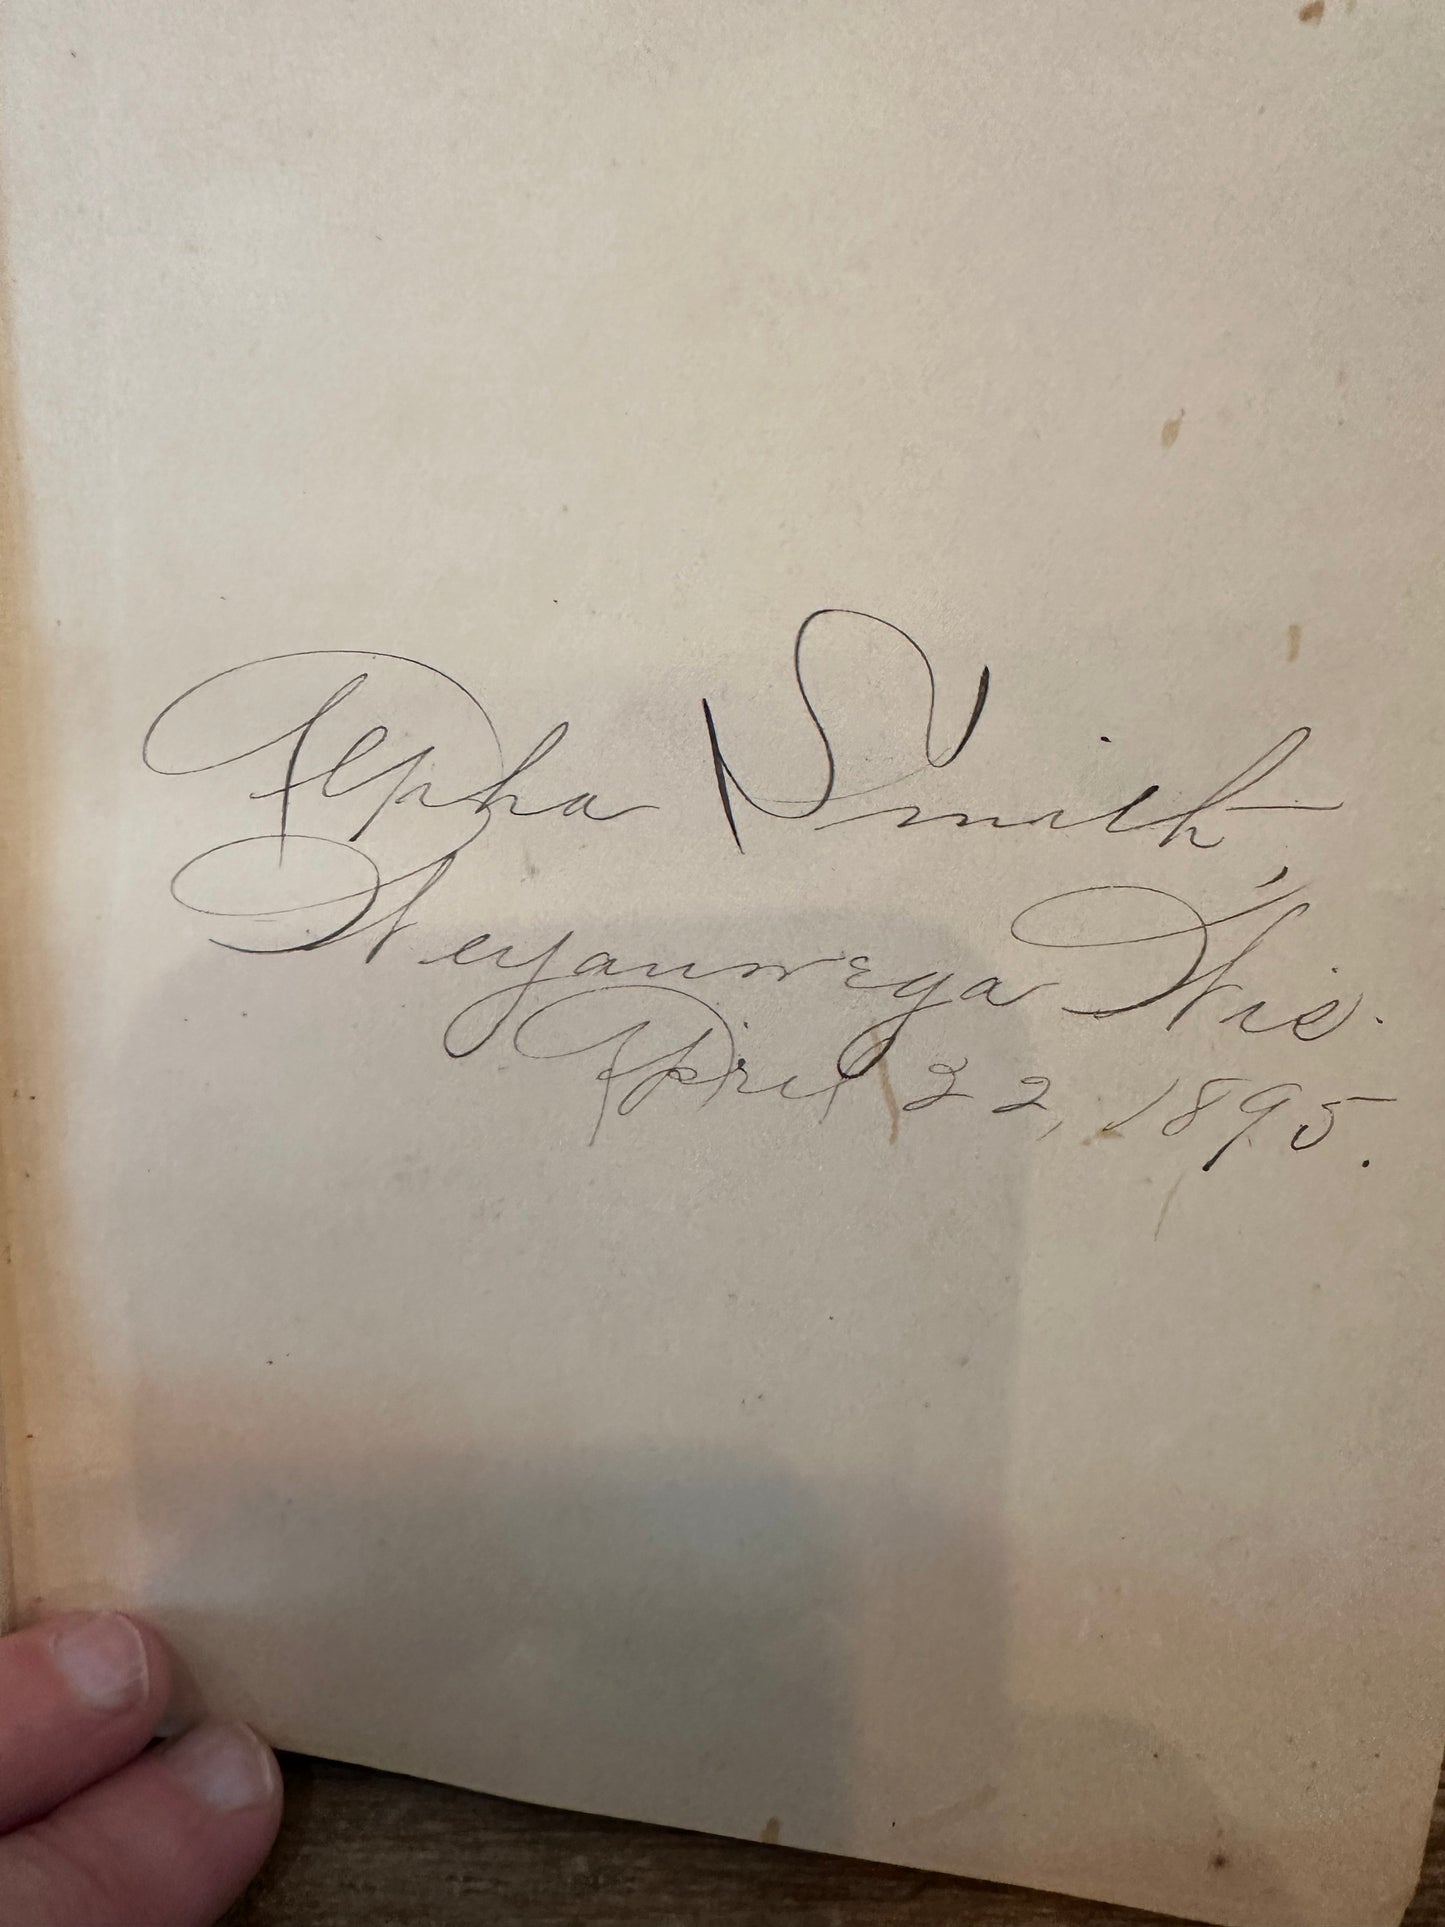 Alpha Smith,
Weyauwega, Wis.
April 22, 1895.